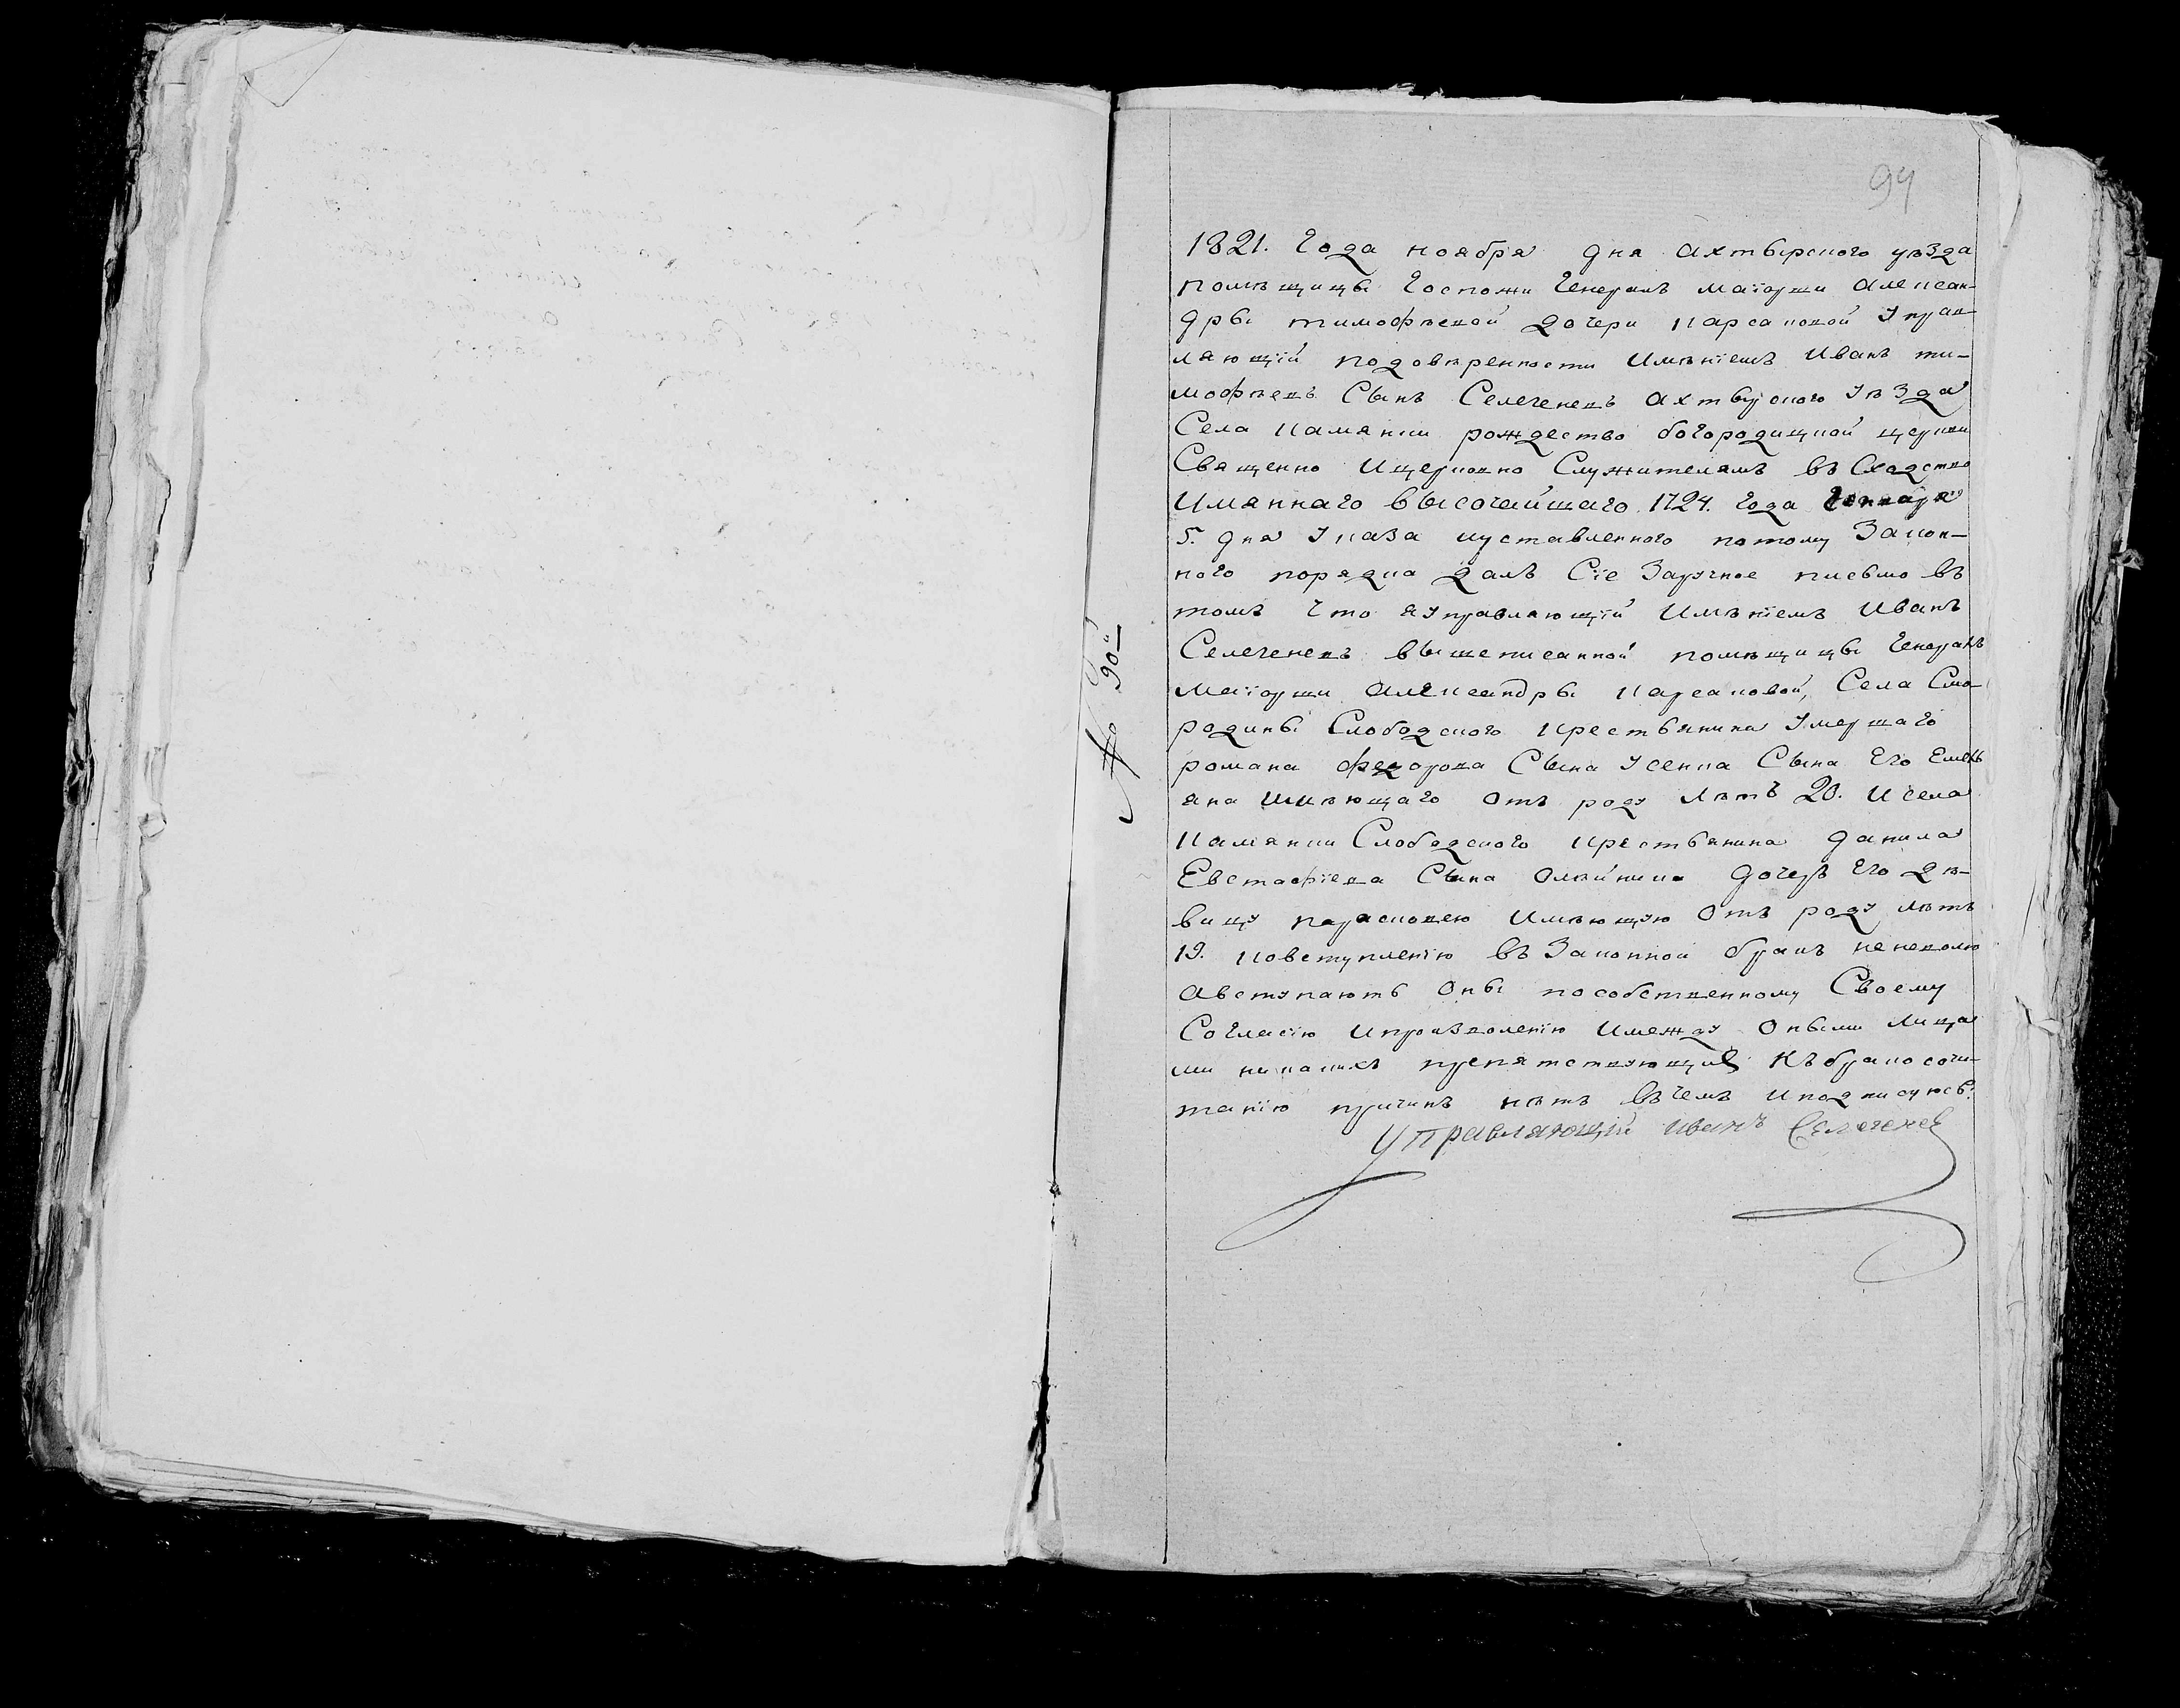 94
1821. Года ноября дня Ахтырского уѣзда
помѣщицы Госпожи Генералъ маіорши Алексан-
дры тимофѣевой дочери Карсаковой Управ-
ляющій подовѣренности Имѣніемъ Иванъ ти-
мофѣевъ Сынъ Селегеневъ Ахтырского Уѣзда
Села Камянки рождество богородицкой церкви
Священно Ицерковно Служителямъ въ Сходство
Имяннаго высочайшаго 1724. года Генваря
5. дня Указа иуставленного потому Закон-
ного порядка далъ Сіе Заручное писъмо въ
томъ Что яуправляющій Имѣніемъ Иванъ
Селегеневъ вышеписанной помѣщицы Генералъ
Маіорши Александры Карсаковой, Села Смо-
родины Слободского крестьянина Умершаго
романа федорова Сына Усенка Сына Его Емель
яна Имѣющаго Отъ роду Лѣтъ 20. Исела
Камянки Слободского крестьянина данила
Евстафіева Сына Олѣйника Дочерь Его дѣ-
вицу парасковею Имѣющую Отъ роду лѣтъ
19. Ковступленію въ Законной бракъ неневолю
Авступаютъ Оны пособственному Своему
Согласію Ипроизволенію Имежду Оными Лица
ми никакихъ препятствующихъ Къбракосоче-
танію причинъ нѣтъ въчемъ Иподписуюсь.
Управляющій иванъ Селегенев
№ 90й